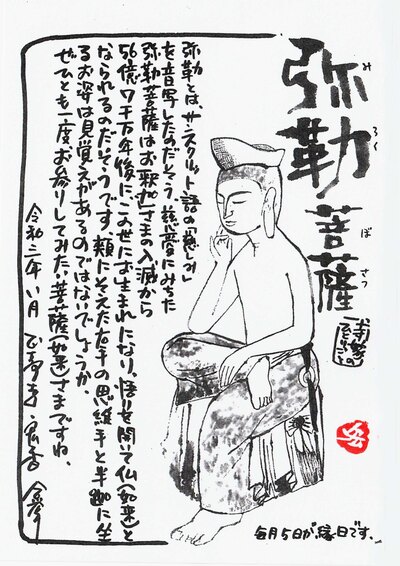 弥勒菩薩
みろくぼさつ
弥勒とは、サンスクリット語の「慈しみ」
を音写したのだそう。慈愛にみちた
弥勒菩薩はお釈迦さまの入滅から
56億7千万年後にこの世にお生まれになり、悟りを開いて仏(如来)と
なられるのだそうです。頬にそえた右手の思惟手と半跏に坐
るお姿は見覚えがあるのではないでしょうか。
ぜひとも一度お参りしてみたい菩薩(如来)さまですね。
令和三年八月
毎月5日が縁日です。